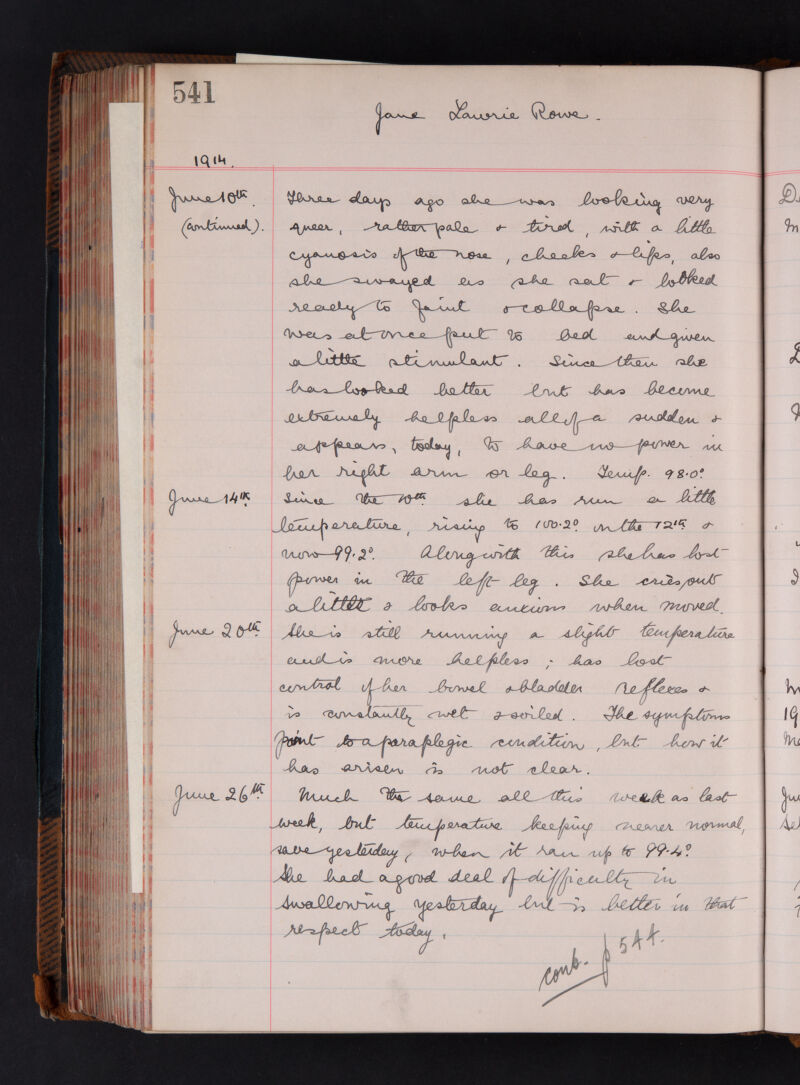 541
Jane Lawrie Rowe.
1914.
June 10th. Three days ago she was looking very
(continued). queer, rather pale & tired, with a little
cyanosis of the nose, cheeks & lips, also
she swayed as she sat & looked
ready to faint & collapse. She
was at once put to bed and given
a little stimulant. Since then she
has looked better but has become
extremely helpless all of a sudden &
appears, today, to have no power in
her right arm or leg. Temp. 98.0°.
June 14th Since the 10th she has run a little
temperature, rising to 100.2° on the 12th &
now 99.2°. Along with this she has lost
power in the left leg. She cries out
a little & looks anxious when moved.
June 20th. She is still running a slight temperature
and is more helpless; has lost
control of her bowel & bladder reflexes &
is constantly wet & soiled. The symptoms
point to a paraplegic condition, but how it
has arisen is not clear.
June 26th Much the same all this week as last
week, but temperature keeping nearer normal,
save yesterday, when it ran up to 99.4°.
She had a good deal of difficulty in
swallowing yesterday but is better in that
respect today.
cont. p 544.